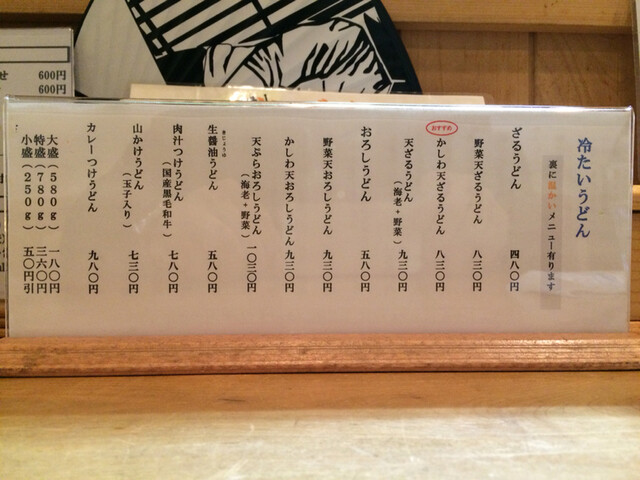 冷たいうどん
裏に温かいメニュー有ります
ざるうどん 四八〇円
野菜天ざるうどん 八三〇円
おすすめ
かしわ天ざるうどん 八三〇円
天ざるうどん 九三〇円
(海老+野菜)
おろしうどん 五八〇円
野菜天おろしうどん 九三〇円
かしわ天おろしうどん 九三〇円
天ぷらおろしうどん 一〇三〇円
(海老+野菜)
きじょうゆ
生醤油うどん 五八〇円
肉汁つけうどん 七八〇円
(国産黒毛和牛)
山かけうどん 七三〇円
(玉子入り)
カレーつけうどん 九八〇円
大盛(580g) 一八〇円
特盛(780g) 三六〇円
小盛(250g) 五〇円引
せ 600円
600円